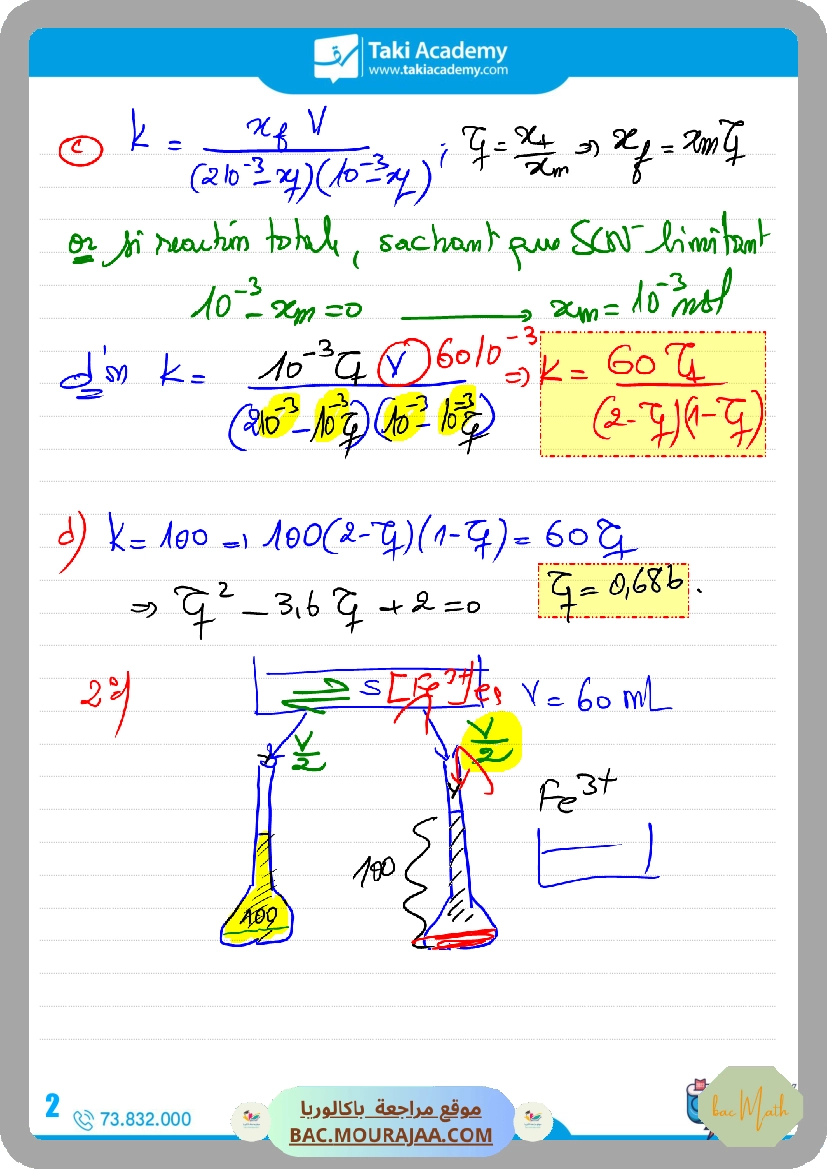 Taki Academy
www.takiacademy.com
c) K = x_f V / (2 10⁻³ - x_f)(10⁻³ - x_f) ; τ_f = x_f / x_m ⇒ x_f = x_m τ_f
or si reaction totale, sachant que SCN⁻ limitant
10⁻³ - x_m = 0 → x_m = 10⁻³ mol
d'où K = 10⁻³ τ_f V 60 10⁻³ / (2 10⁻³ - 10⁻³ τ_f)(10⁻³ - 10⁻³ τ_f) ⇒ K = 60 τ_f / (2 - τ_f)(1 - τ_f)
d) K = 100 ⇒ 100(2 - τ_f)(1 - τ_f) = 60 τ_f
⇒ τ_f² - 3,6 τ_f + 2 = 0 τ_f = 0,686.
2°/ ⇌ S [Fe³⁺]eq V = 60 mL
V/2 V/2
Fe³⁺
100
100
2
73.832.000
موقع مراجعة باكالوريا
BAC.MOURAJAA.COM
bac Math